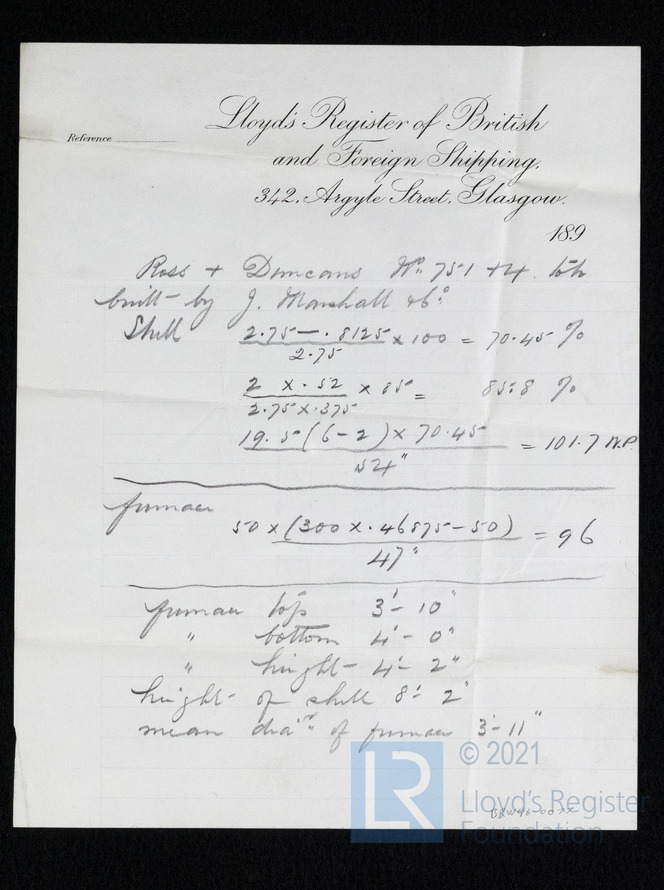 Lloyd's Register of British
Reference
and Foreign Shipping.
342, Argyle Street, Glasgow.
189
Ross + Duncans No. 751 +4
built by J. Marshall & Co
Shell 2.75 - .8125 / 2.75 x 100 = 70.45 %
2 x .52 / 2.75 x .375 x 85 = 85.8 %
19.5 (6-2) x 70.45 / 54" = 101.7 W.P.
furnace
50 x (300 x .46875 - 50) / 47" = 96
furnace top 3'- 10"
" bottom 4'- 0"
" height 4'- 2"
height of shell 8'- 2"
mean diar. of furnace 3'- 11"
LR © 2021
Lloyd's Register
Foundation